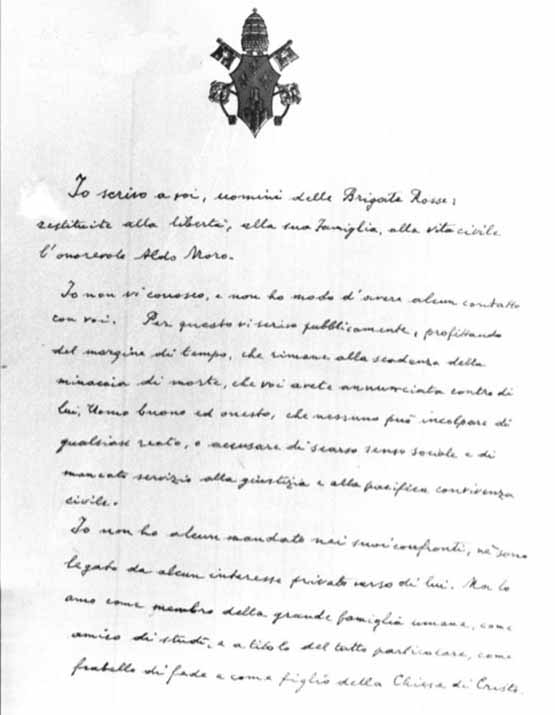 Io scrivo a voi, uomini delle Brigate Rosse:
restituite alla libertà, alla sua famiglia, alla vita civile
l'onorevole Aldo Moro.
Io non vi conosco, e non ho modo d'avere alcun contatto
con voi. Per questo vi scrivo pubblicamente, profittando
del margine di tempo, che rimane alla scadenza della
minaccia di morte, che voi avete annunciata contro di
lui, Uomo buono ed onesto, che nessuno può incolpare di
qualsiasi reato, o accusare di scarso senso sociale e di
mancato servizio alla giustizia e alla pacifica convivenza
civile.
Io non ho alcun mandato nei suoi confronti, nè sono
legato da alcun interesse privato verso di lui. Ma lo
amo come membro della grande famiglia umana, come
amico di studi, e a titolo del tutto particolare, come
fratello di fede e come figlio della Chiesa di Cristo.